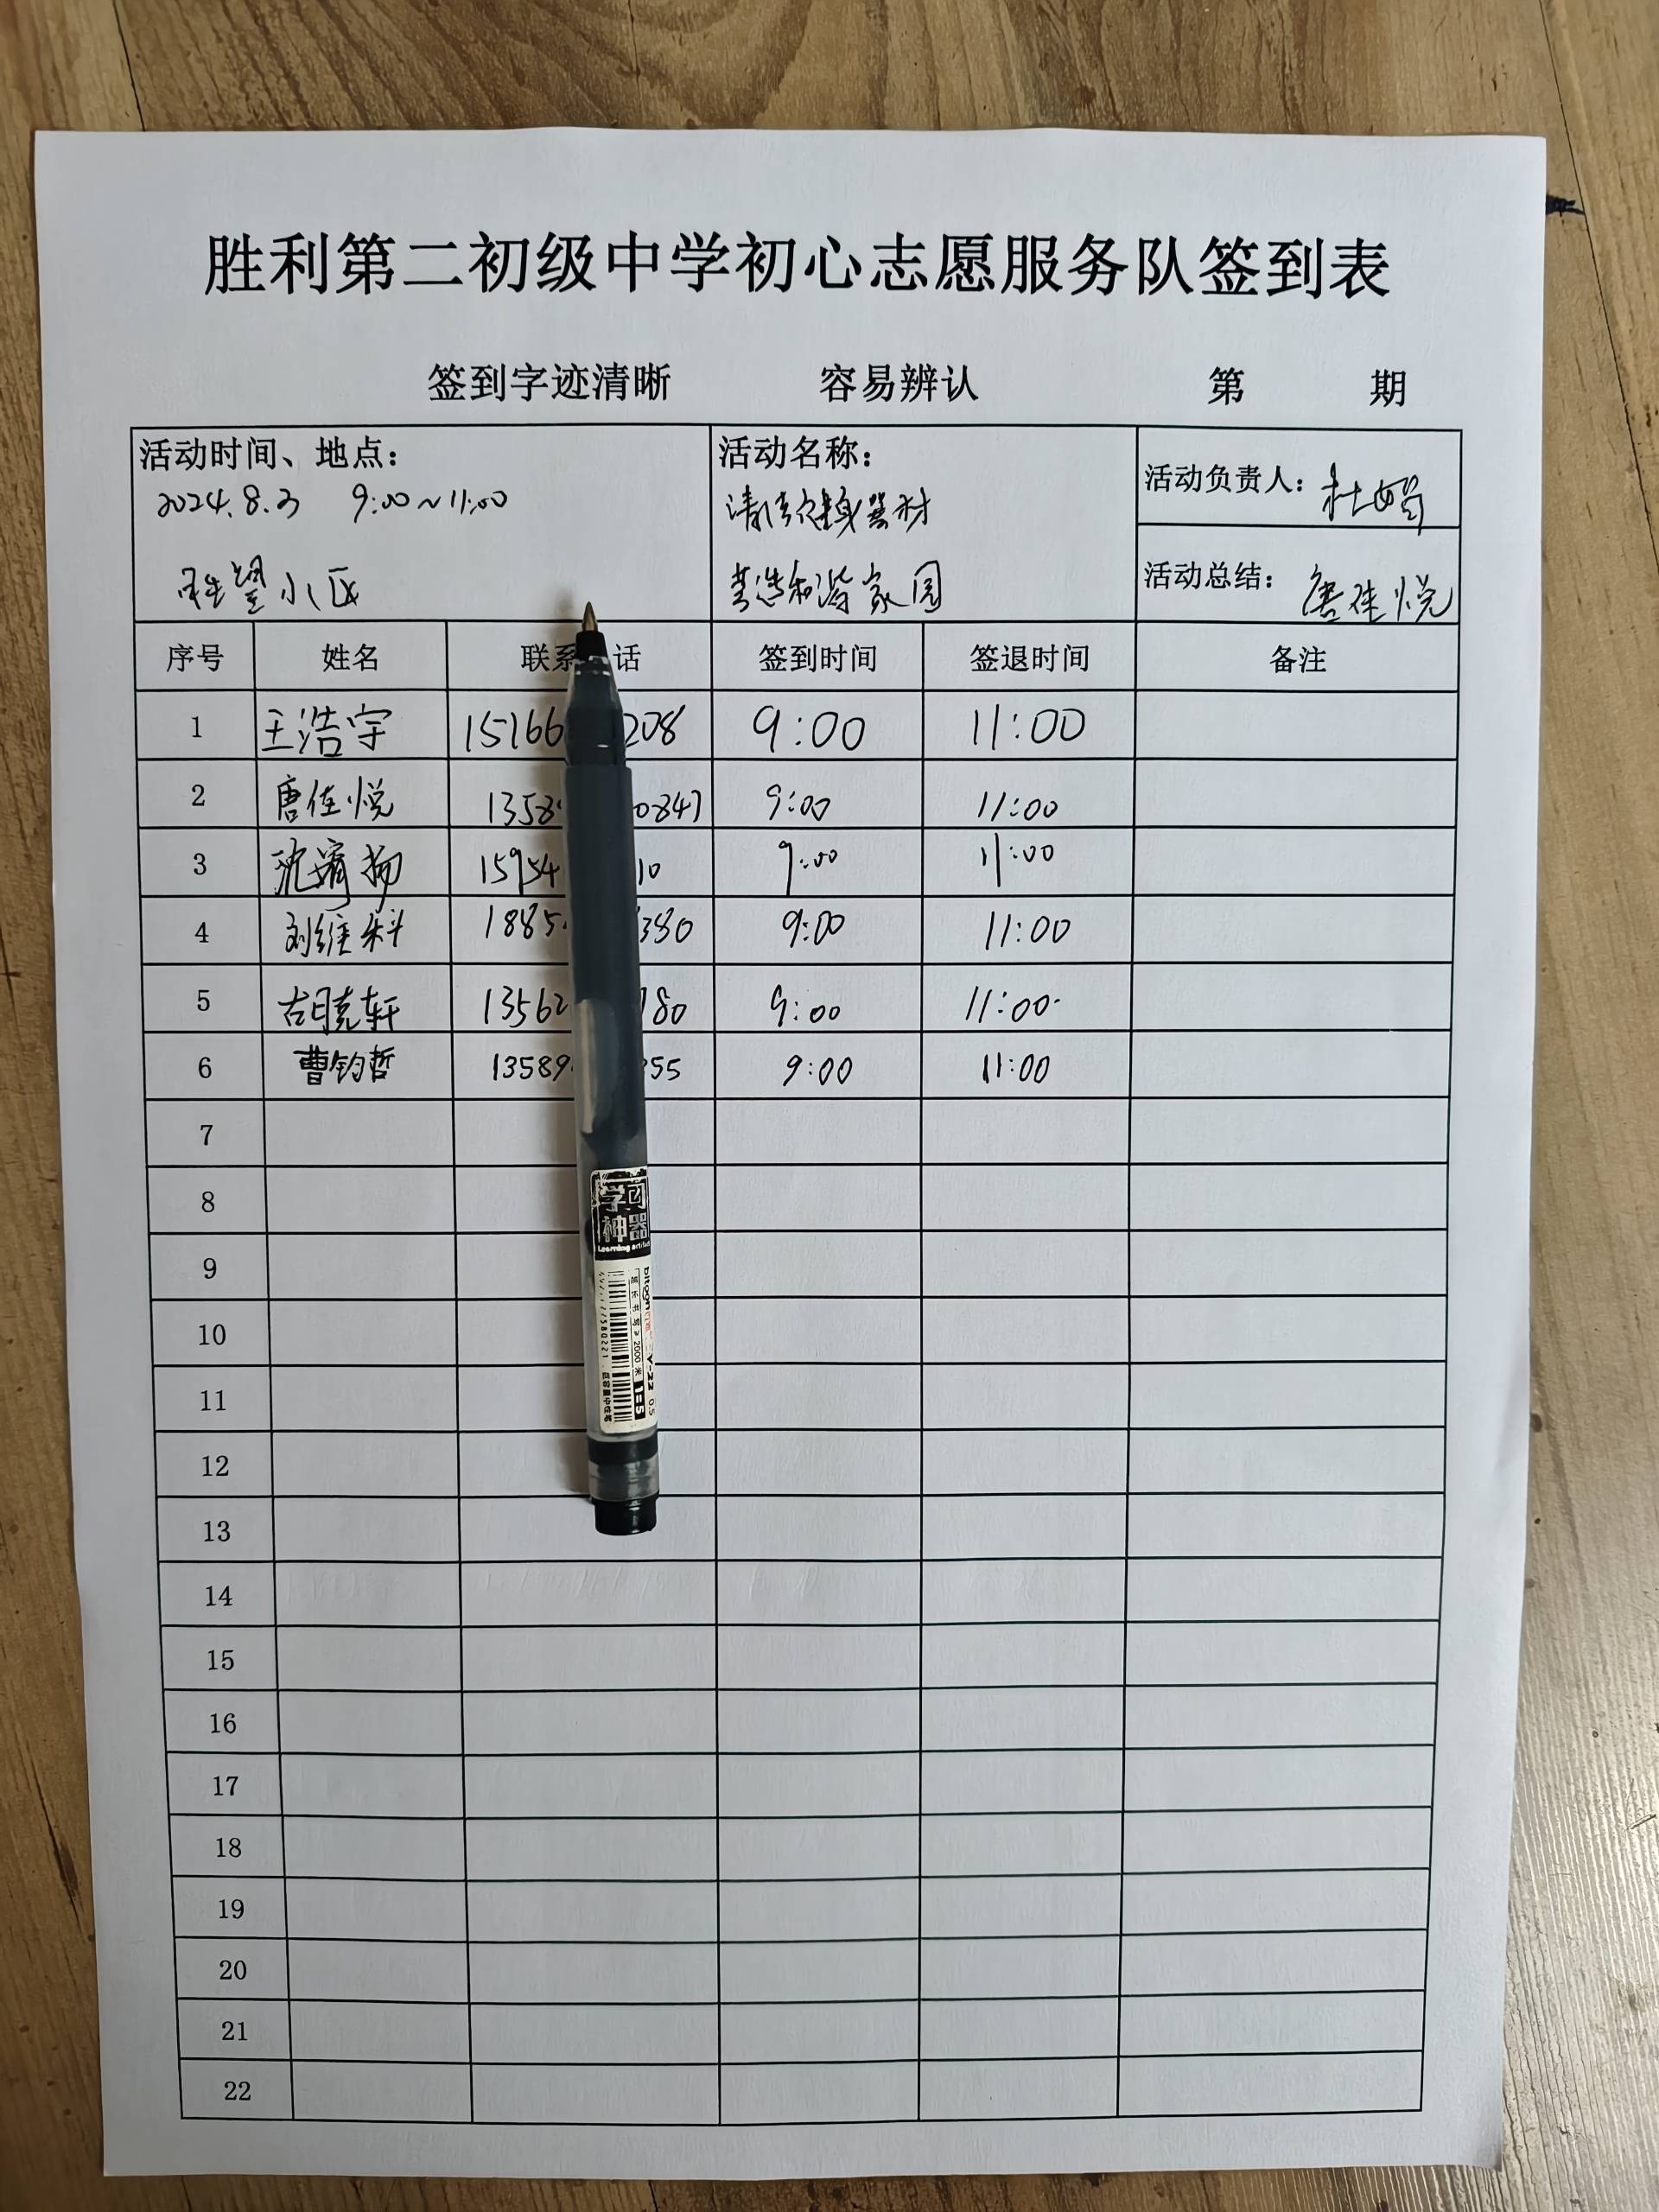 胜利第二初级中学初心志愿服务队签到表
签到字迹清晰 容易辨认 第 期
活动时间、地点：
2024.8.3 9:00~11:00
小区
活动名称：
清洁健身器材
营造和谐家园
活动负责人：杜娟
活动总结：唐佳悦
序号 姓名 联系 话 签到时间 签退时间 备注
1 王浩宇 15166 208 9:00 11:00
2 唐佳悦 1358 0847 9:00 11:00
3 沈 扬 15954 10 9:00 11:00
4 刘维科 1885 380 9:00 11:00
5 胡竞轩 13562 180 9:00 11:00
6 曹钧哲 13589 355 9:00 11:00
7
8
9
10
11
12
13
14
15
16
17
18
19
20
21
22
学习
神器
Learning artifact
V-22 0.5